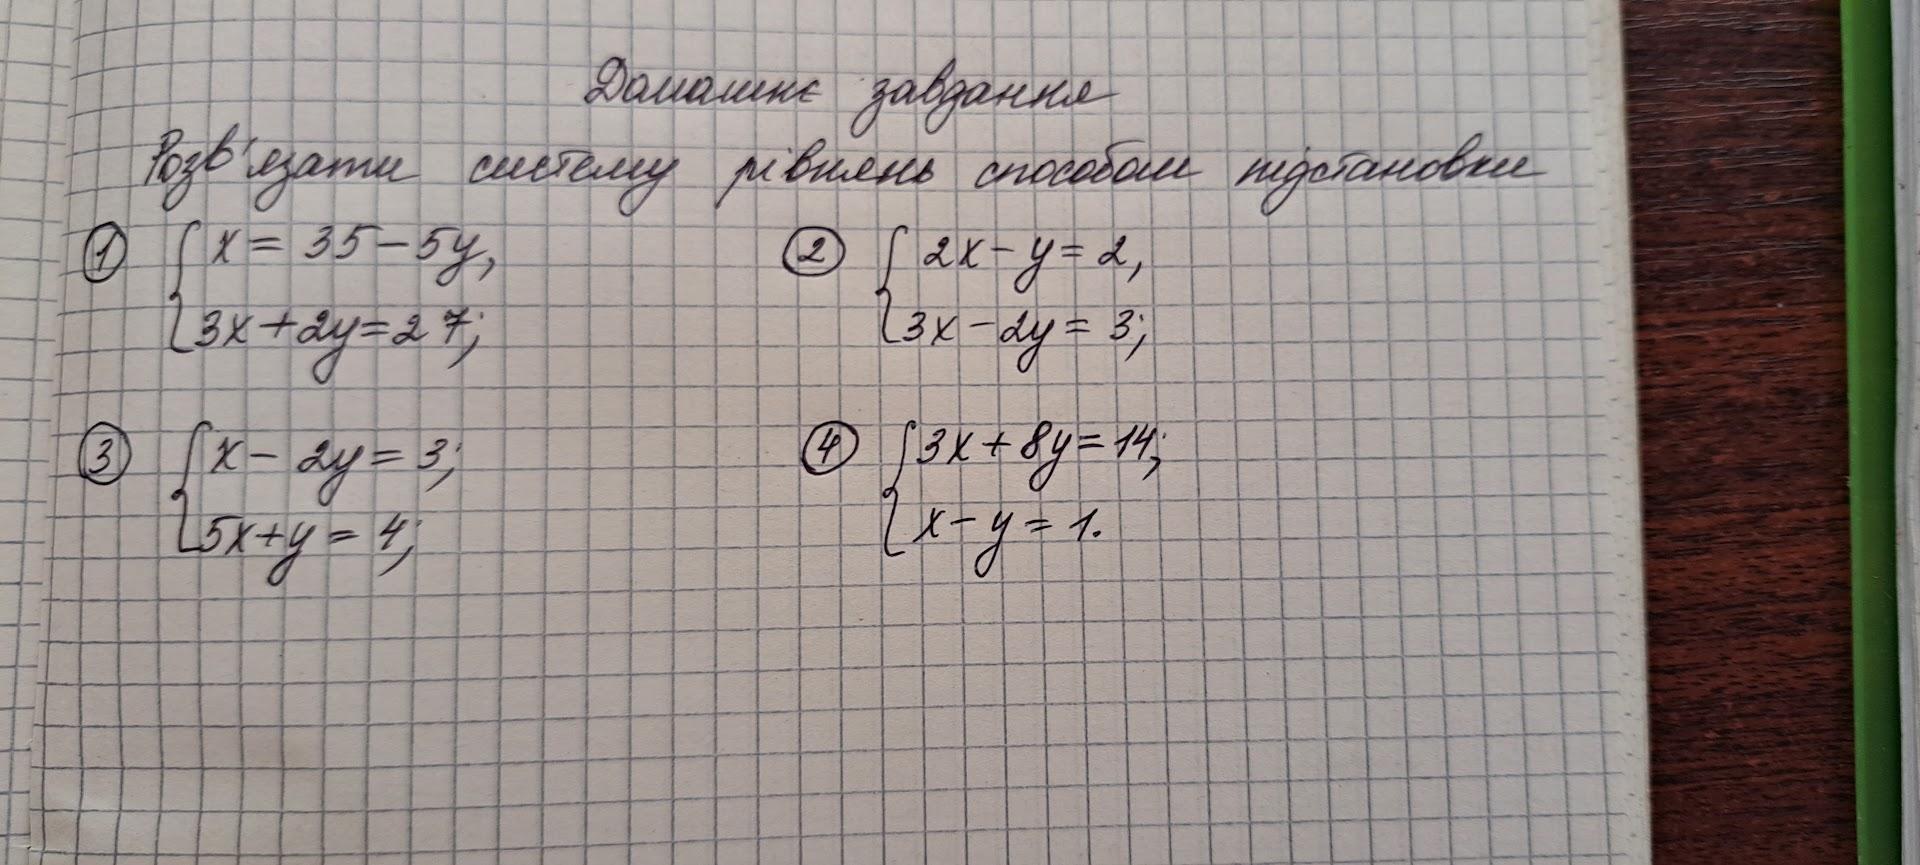 Домашнє завдання
Розв'язати систему рівнянь способом підстановки
① { x = 35 - 5y,
3x + 2y = 27;
② { 2x - y = 2,
3x - 2y = 3;
③ { x - 2y = 3;
5x + y = 4;
④ { 3x + 8y = 14;
x - y = 1.